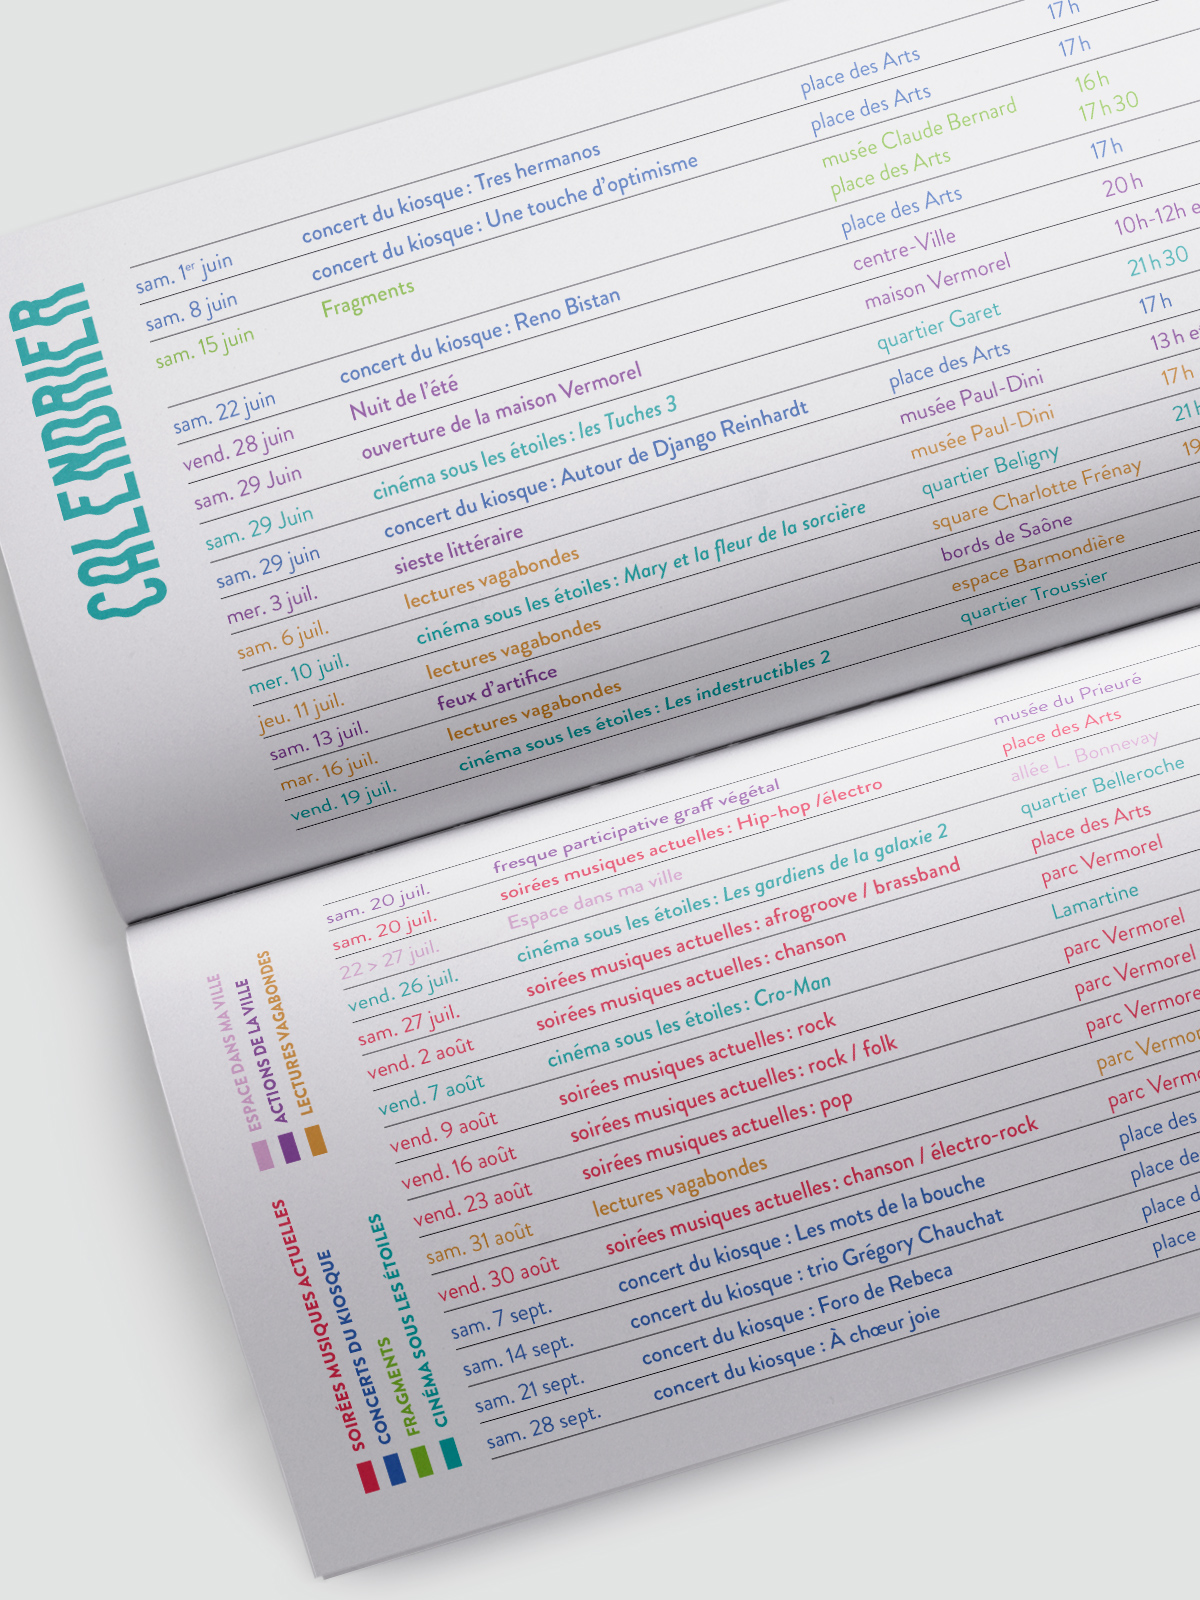 CALENDRIER
sam. 1er juin concert du kiosque : Tres hermanos place des Arts 17 h
sam. 8 juin concert du kiosque : Une touche d'optimisme place des Arts 17 h
sam. 15 juin Fragments musée Claude Bernard 16 h
place des Arts 17 h 30
sam. 22 juin concert du kiosque : Reno Bistan place des Arts 17 h
vend. 28 juin Nuit de l'été centre-Ville 20 h
sam. 29 Juin ouverture de la maison Vermorel maison Vermorel 10h-12h
sam. 29 Juin cinéma sous les étoiles : les Tuches 3 quartier Garet 21 h 30
sam. 29 juin concert du kiosque : Autour de Django Reinhardt place des Arts 17 h
mer. 3 juil. sieste littéraire musée Paul-Dini 13 h
sam. 6 juil. lectures vagabondes musée Paul-Dini 17 h
mer. 10 juil. cinéma sous les étoiles : Mary et la fleur de la sorcière quartier Beligny 21 h
jeu. 11 juil. lectures vagabondes square Charlotte Frénay 19
sam. 13 juil. feux d'artifice bords de Saône
mar. 16 juil. lectures vagabondes espace Barmondière
vend. 19 juil. cinéma sous les étoiles : Les indestructibles 2 quartier Troussier
sam. 20 juil. fresque participative graff végétal musée du Prieuré
sam. 20 juil. soirées musiques actuelles : Hip-hop /électro place des Arts
22 > 27 juil. Espace dans ma ville allée L. Bonnevay
vend. 26 juil. cinéma sous les étoiles : Les gardiens de la galaxie 2 quartier Belleroche
sam. 27 juil. soirées musiques actuelles : afrogroove / brassband place des Arts
vend. 2 août soirées musiques actuelles : chanson parc Vermorel
vend. 7 août cinéma sous les étoiles : Cro-Man Lamartine
vend. 9 août soirées musiques actuelles : rock parc Vermorel
vend. 16 août soirées musiques actuelles : rock / folk parc Vermorel
vend. 23 août soirées musiques actuelles : pop parc Vermore
sam. 31 août lectures vagabondes parc Vermor
vend. 30 août soirées musiques actuelles : chanson / électro-rock parc Vermo
sam. 7 sept. concert du kiosque : Les mots de la bouche place des
sam. 14 sept. concert du kiosque : trio Grégory Chauchat place de
sam. 21 sept. concert du kiosque : Foro de Rebeca place d
sam. 28 sept. concert du kiosque : À chœur joie place
ESPACE DANS MA VILLE
ACTIONS DE LA VILLE
LECTURES VAGABONDES
SOIRÉES MUSIQUES ACTUELLES
CONCERTS DU KIOSQUE
FRAGMENTS
CINÉMA SOUS LES ÉTOILES